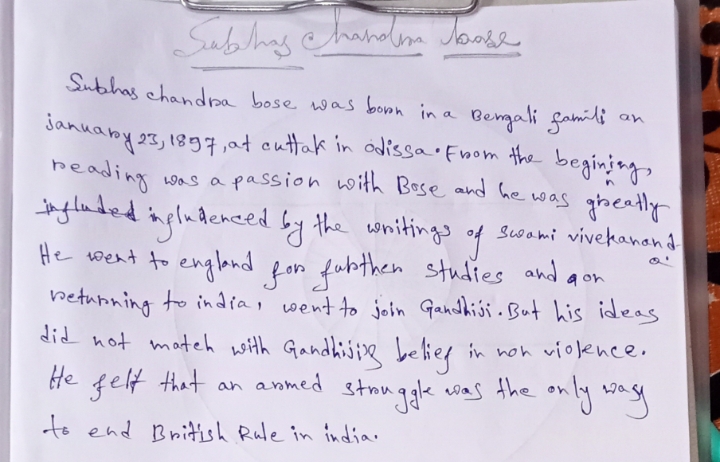 Subhas chandra bose
Subhas chandra bose was born in a Bengali famili on
january 23, 1897, at cuttak in odissa. From the begining,
reading was a passion with Bose and he was greatly
infludenced by the writings of swami vivekananda.
He went to england for further studies and
returning to india, went to join Gandhiji. But his ideas
did not match with Gandhiji's belief in non violence.
He felt that an armed struggle was the only way
to end British Rule in india.